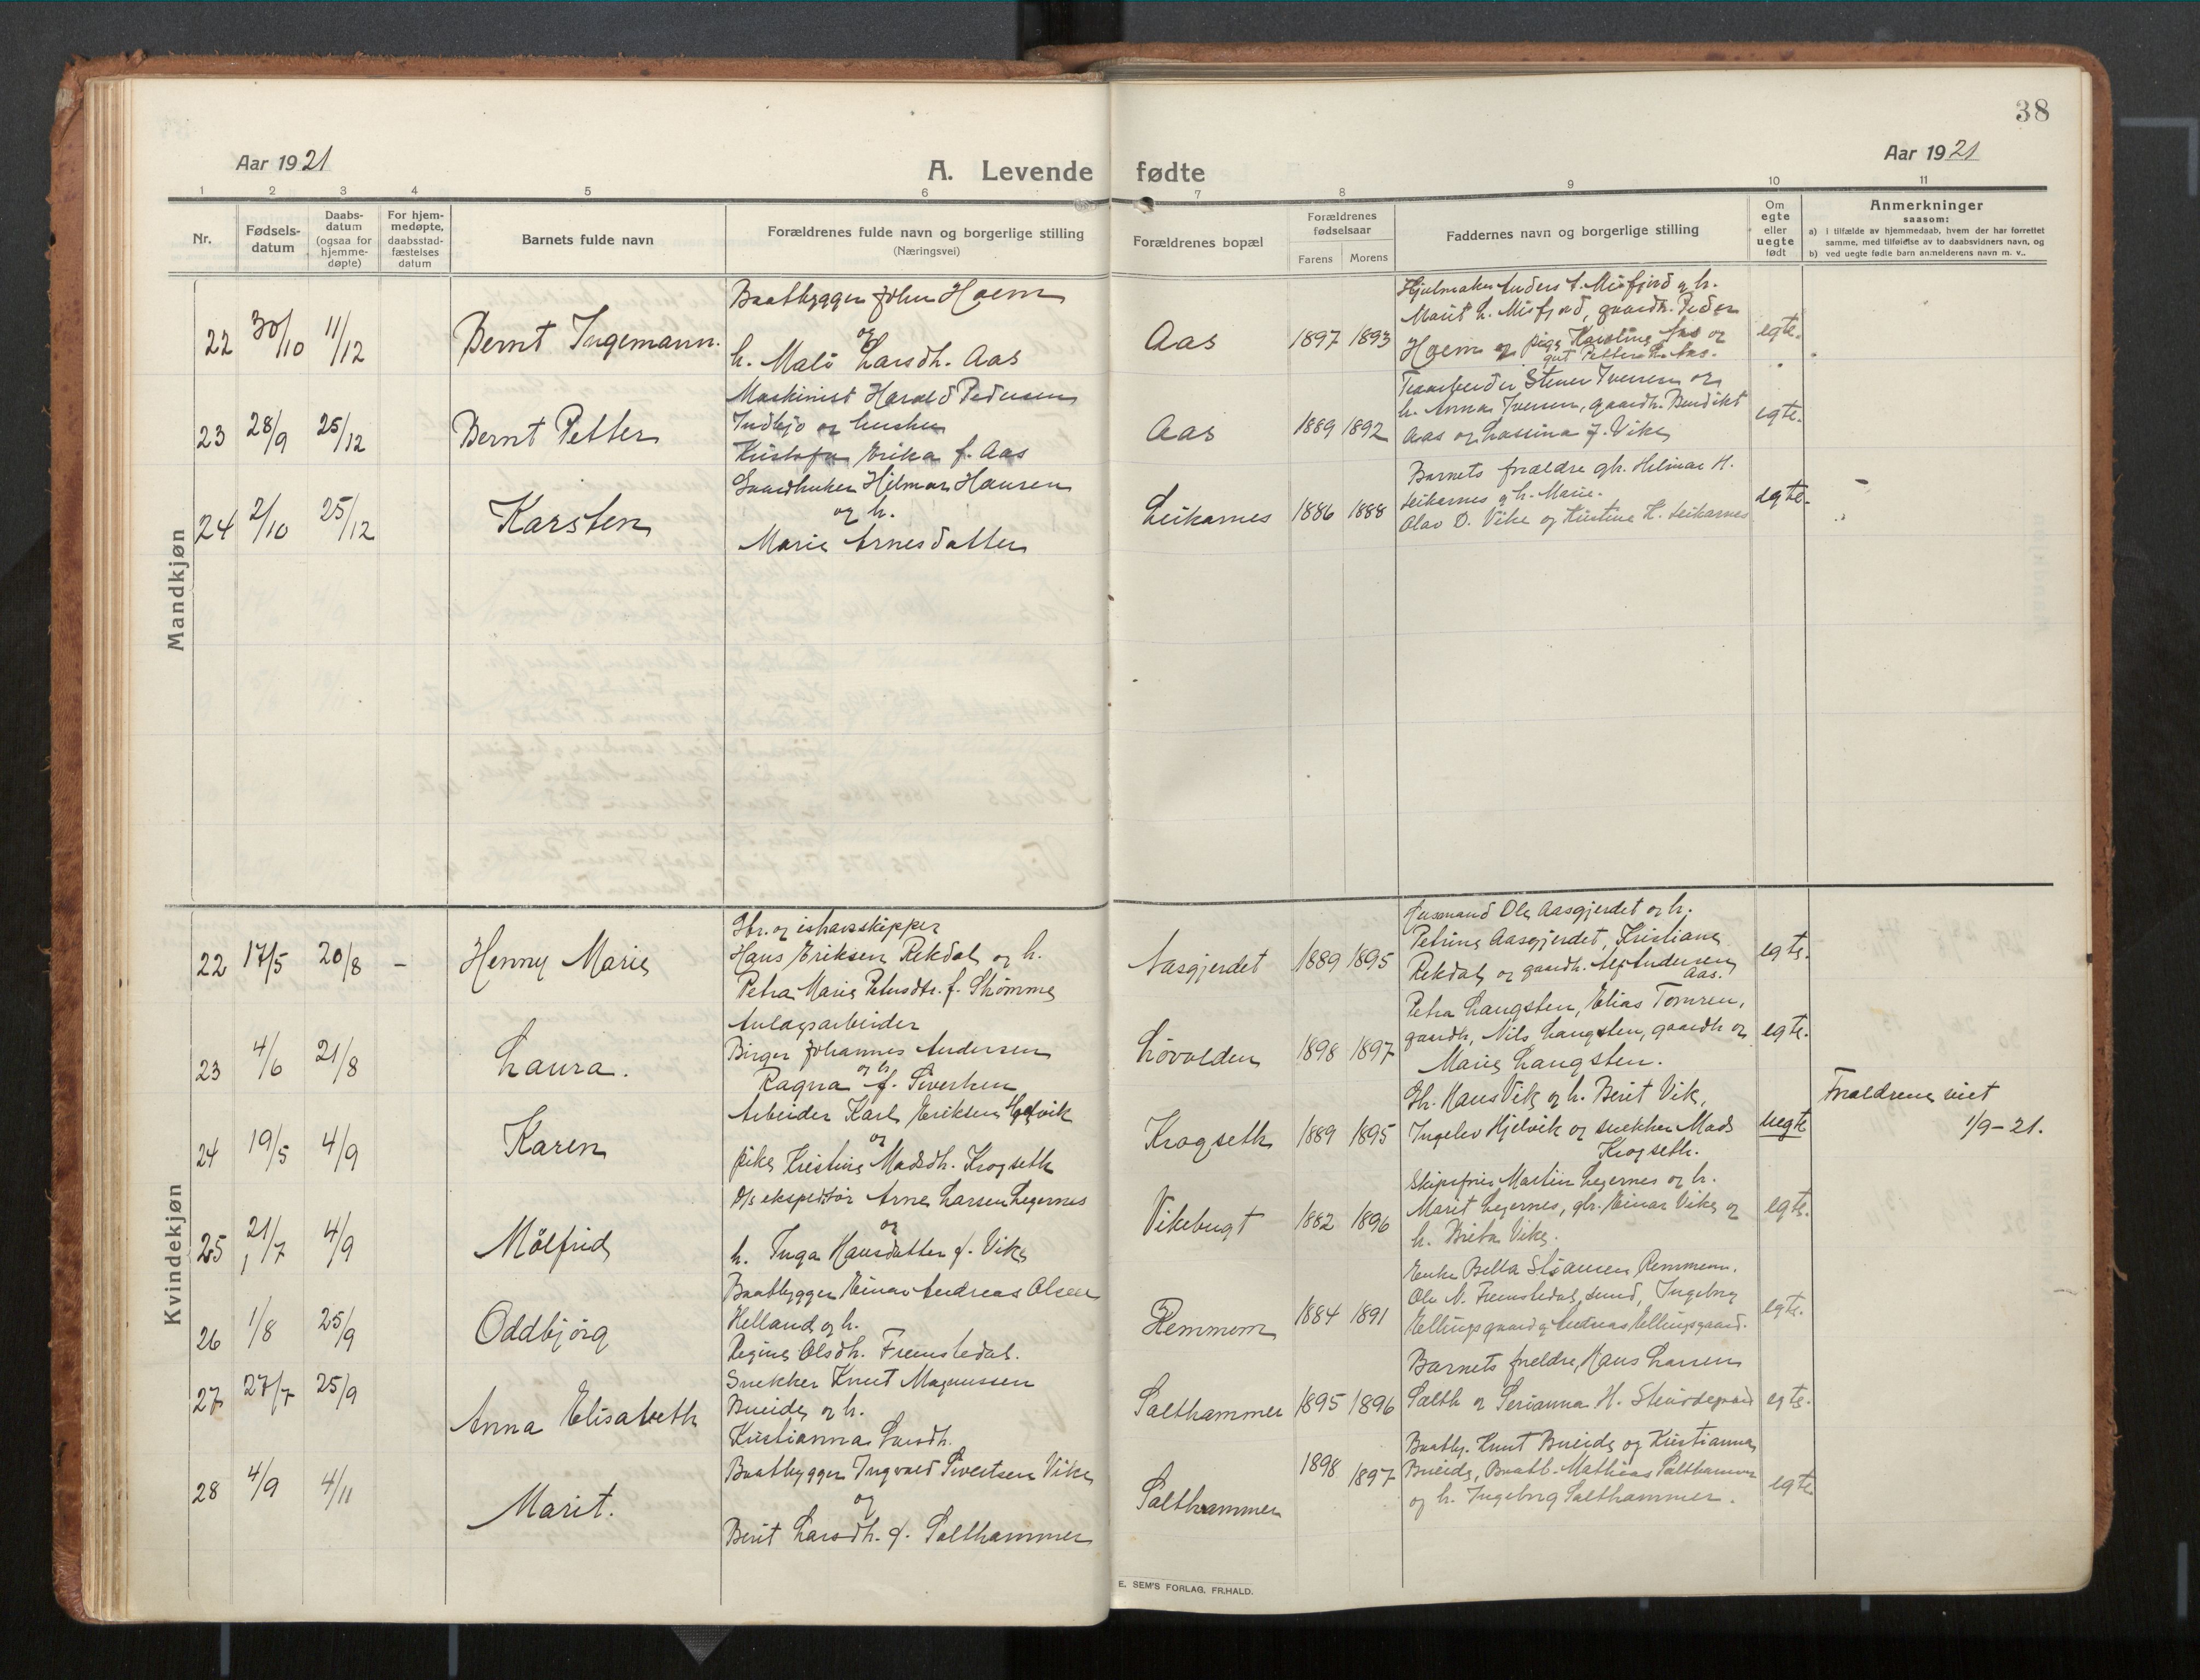 38
Aar 1921
A. Levende fødte
Aar 1921
1 2 3 4 5 6 7 8 9 10 11
Nr.
Fødsels-
datum
Daabs-
datum
(ogsaa for
hjemme-
døpte)
For hjem-
medøpte,
daabsstad-
fæstelses
datum
Barnets fulde navn
Forældrenes fulde navn og borgerlige stilling
(Næringsvei)
Forældrenes bopæl
Forældrenes
fødselsaar
Farens Morens
Faddernes navn og borgerlige stilling
Om
egte
eller
uegte
født
Anmerkninger
saasom:
a) i tilfælde av hjemmedaab, hvem der har forrettet
samme, med tilføielse av to daabsvidners navn, og
b) ved uegte fødte barn anmelderens navn m. v..
Mandkjøn
22 30/10 11/12
Bernt Ingemann.
Baatbygger John Hoem
og
h. Mali Larsdh. Aas
Aas
1897 1893
Hjulmaker Anders A. Misfjord og h.
Marit L. Misfjord, gaardb. Peder
Hoem og pige Karoline Aas og
gut Petter L. Aas.
egte.
23 28/9 25/12
Bernt Petter
Maskinist Harald Pedersen
Indbjo og hustru
Kristofa Erika f. Aas
Aas
1889 1892
Stener Iversen og
h. Anna Iversen, gaardb. Bendikt
Aas og Lassina f. Vike
egte.
24 2/10 25/12
Karsten
Gaardbruker Hilmar Hansen
og h.
Marie Arnesdatter
Leikarnes
1886 1888
Barnets forældre gb. Hilmar H.
Leikarnes og h. Marie.
Olav O. Vike og Kristine H. Leikarnes
egte.
Kvindekjøn
22 17/5 20/8 -
Henny Marie
Gbr. og ishavsskipper
Hans Eriksen Rekdal og h.
Petra Marie Petersdtr. f. Strømme
Aasgjerdet
1889 1895
Husmand Ole Aasgjerdet og h.
Petrine Aasgjerdet, Kristiane
Rekdal og gaardb. Alf Andersen
Aas.
egte.
23 4/6 21/8
Laura.
Anlægsarbeider
Birger Johannes Andersen
og h.
Ragna f. Sivertsen
Løvolden
1898 1897
Petra Langsten, Elias Tomren,
gaardb, Nils Langsten, gaardb og
Marie Langsten.
egte.
24 19/5 4/9
Karen
Arbeider Karl Eriksen Hjelvik
og
pike Kristine Madsdh. Krogseth
Krogseth
1889 1895
Gb. Hans Vik og h. Berit Vik,
Ingelev Hjelvik og snekker Mads
Krogseth.
uegte
Forældrene viet
1/9-21.
25 21/7 4/9
Målfrid
D/s ekspeditør Arne Larsen Legernes
og
h. Inga Hansdatter f. Vike
Vikebugt
1882 1896
Skipsfører Martin Legernes og h.
Marit Legernes, gbr. Einar Vike og
h. Brita Vike.
egte.
26 1/8 25/9
Oddbjørg
Baatbygger Einar Andreas Olsen
Helland og h.
Regine Olsdh. Fremstedal.
Remmem
1884 1891
Enke Bella Stiansen Remmem.
Ole N. Fremstedal, smed, Ingeborg
Ellingsgaard og Andreas Ellingsgaard.
egte.
27 27/7 25/9
Anna Elisabeth
Snekker Knut Magnussen
Bueide og h.
Kristianna Larsdh.
Salthammer
1895 1896
Barnets foreldre, Hans Larsen
Salth og Serianna H.
egte.
28 4/9 4/11
Marit.
Baatbygger Ingvald Sivertsen Vike
og
Berit Larsdh. f. Salthammer
Salthammer
1898 1897
Baatby. Knut Bueide og Kristianna
Bueide, Baatb. Mathias Salthammer
og h. Ingeborg Salthammer.
egte
E. SEM'S FORLAG, FR.HALD.